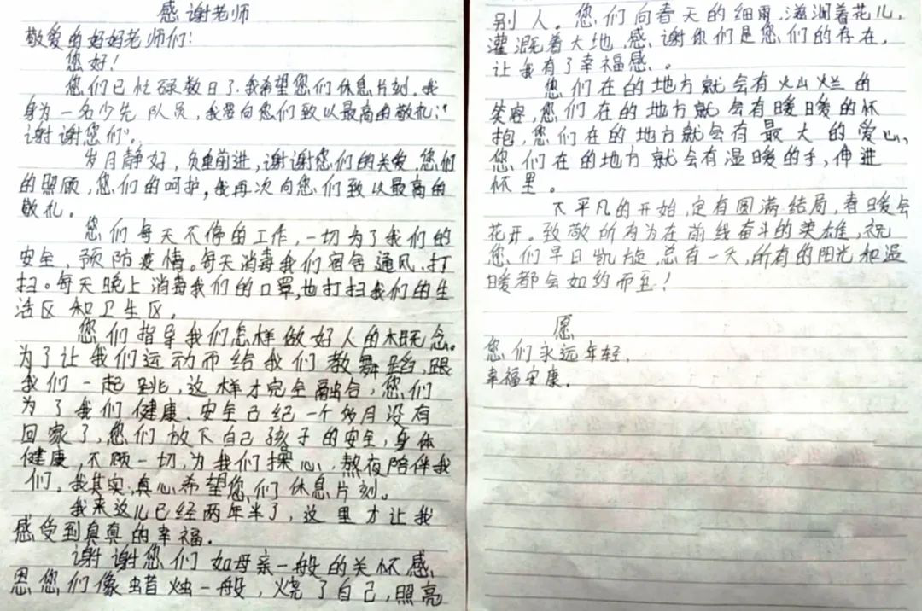 感谢老师
敬爱的好好老师们:
您好!
您们已忙碌数日了,我希望您们休息片刻。我
身为一名少先队员,我要向您们致以最高的敬礼:"
谢谢您们"。
岁月静好,负重前进,谢谢您们的关爱,您们
的照顾,您们的呵护,我再次向您们致以最高的
敬礼。
您们每天不停的工作,一切为了我们的
安全,预防疫情。每天消毒我们宿舍通风、打
扫。每天晚上消毒我们的口罩,也打扫我们的生
活区和卫生区。
您们指导我们怎样做好人的概念。
为了让我们运动而给我们教舞蹈,跟
我们一起跳,这样才完全融合,您们
为了我们健康,安全已纪一个多月没有
回家了,您们放下自己孩子的安全,身体
健康,不顾一切,为我们操心、熬夜陪伴我
们。我其实真心希望您们休息片刻。
我来这儿已经两年半了,这里才让我
感受到真真的幸福。
谢谢您们如母亲一般的关怀感
恩您们像蜡烛一般,烧了自己,照亮
别人。您们向春天的细雨,滋润着花儿,
灌溉着大地,感谢你们是您们的存在,
让我有了幸福感。
您们在的地方就会有火山烂的
笑容,您们在的地方就会有暖暖的怀
抱,您们在的地方就会有最大的爱心,
您们在的地方就会有温暖的手,伸进
怀里。
不平凡的开始,定有圆满结局,春暖会
花开。致敬所有为在前线奋斗的英雄,祝
您们早日凯旋,总有一天,所有的阳光和温
暖都会如约而至!
愿
您们永远年轻,
幸福安康。